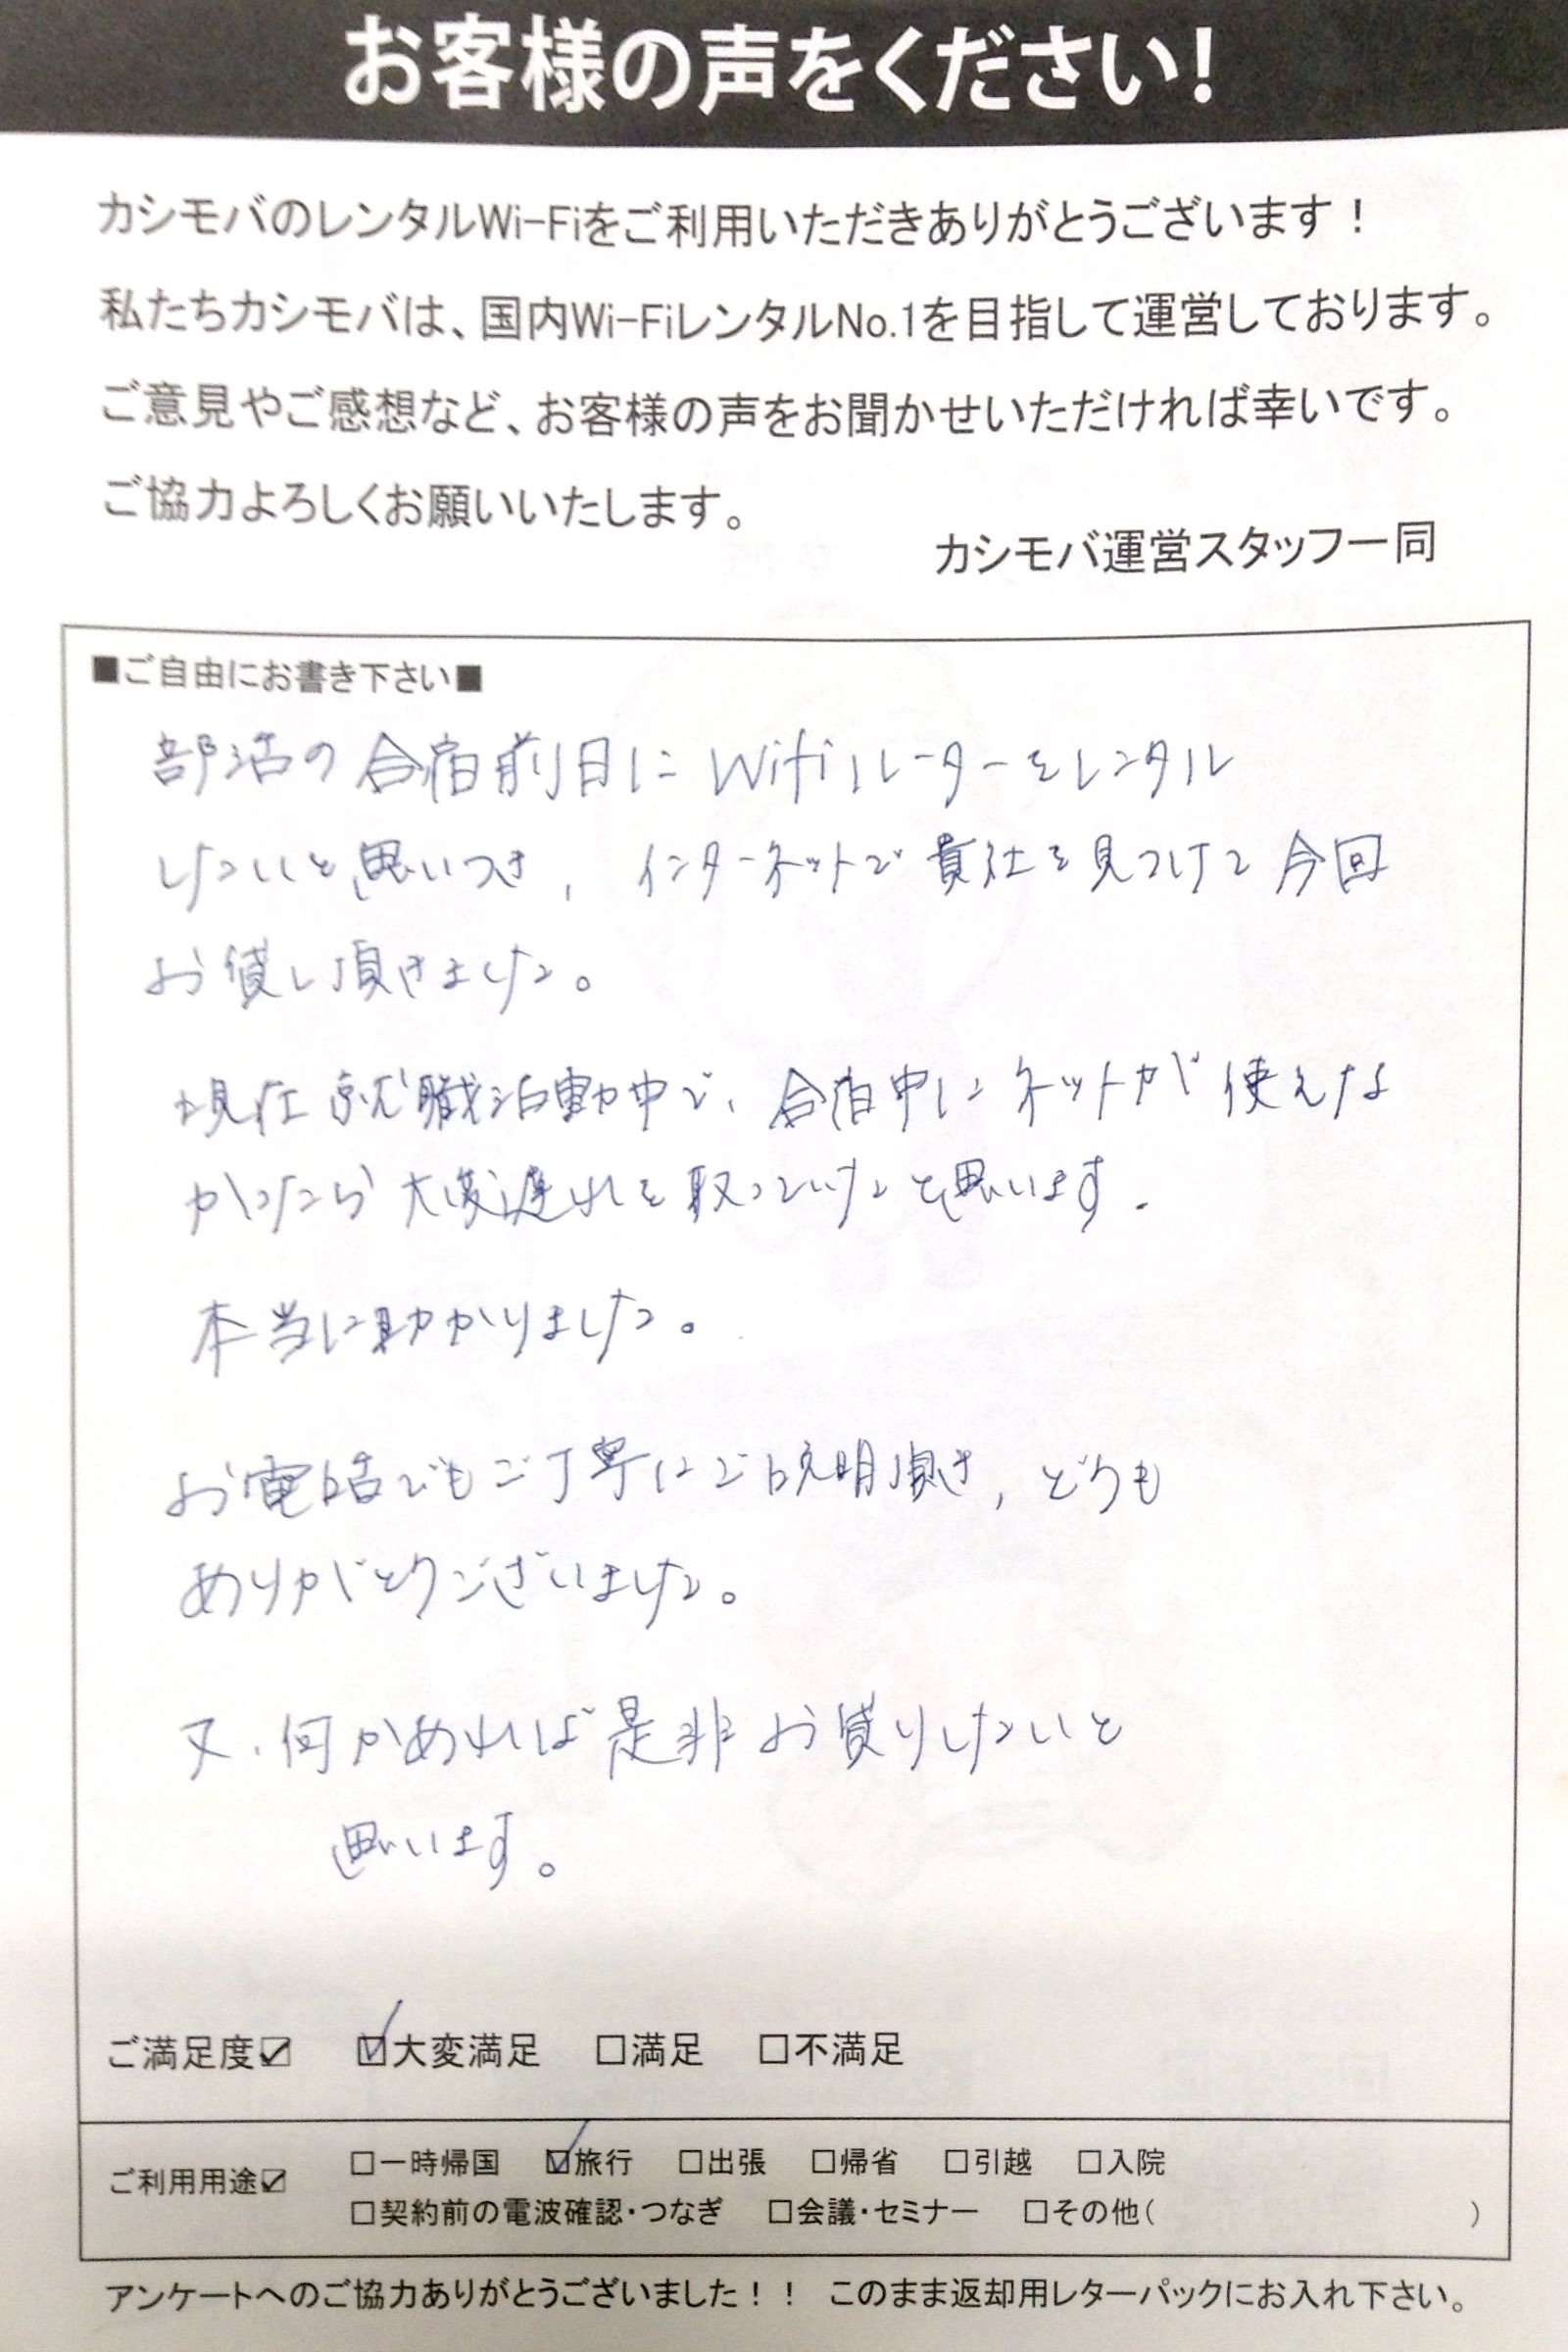 お客様の声をください!
カシモバのレンタルWi-Fiをご利用いただきありがとうございます！
私たちカシモバは、国内Wi-FiレンタルNo.1を目指して運営しております。
ご意見やご感想など、お客様の声をお聞かせいただければ幸いです。
ご協力よろしくお願いいたします。
カシモバ運営スタッフ一同
■ご自由にお書き下さい■
部活の合宿前日にWifiルーターをレンタル
したいと思いつき、インターネットで貴社を見つけて今回
お貸し頂きました。
現在就職活動中で、合宿中にネットが使えな
かったら大変遅れを取っていたと思います。
本当に助かりました。
お電話でもご丁寧にご説明頂き、どうも
ありがとうございました。
又、何かあれば是非お貸りしたいと
思います。
ご満足度☑ ☑大変満足 □満足 □不満足
ご利用用途☑ □一時帰国 ☑旅行 □出張 □帰省 □引越 □入院
□契約前の電波確認・つなぎ □会議・セミナー □その他( )
アンケートへのご協力ありがとうございました！！ このまま返却用レターパックにお入れ下さい。